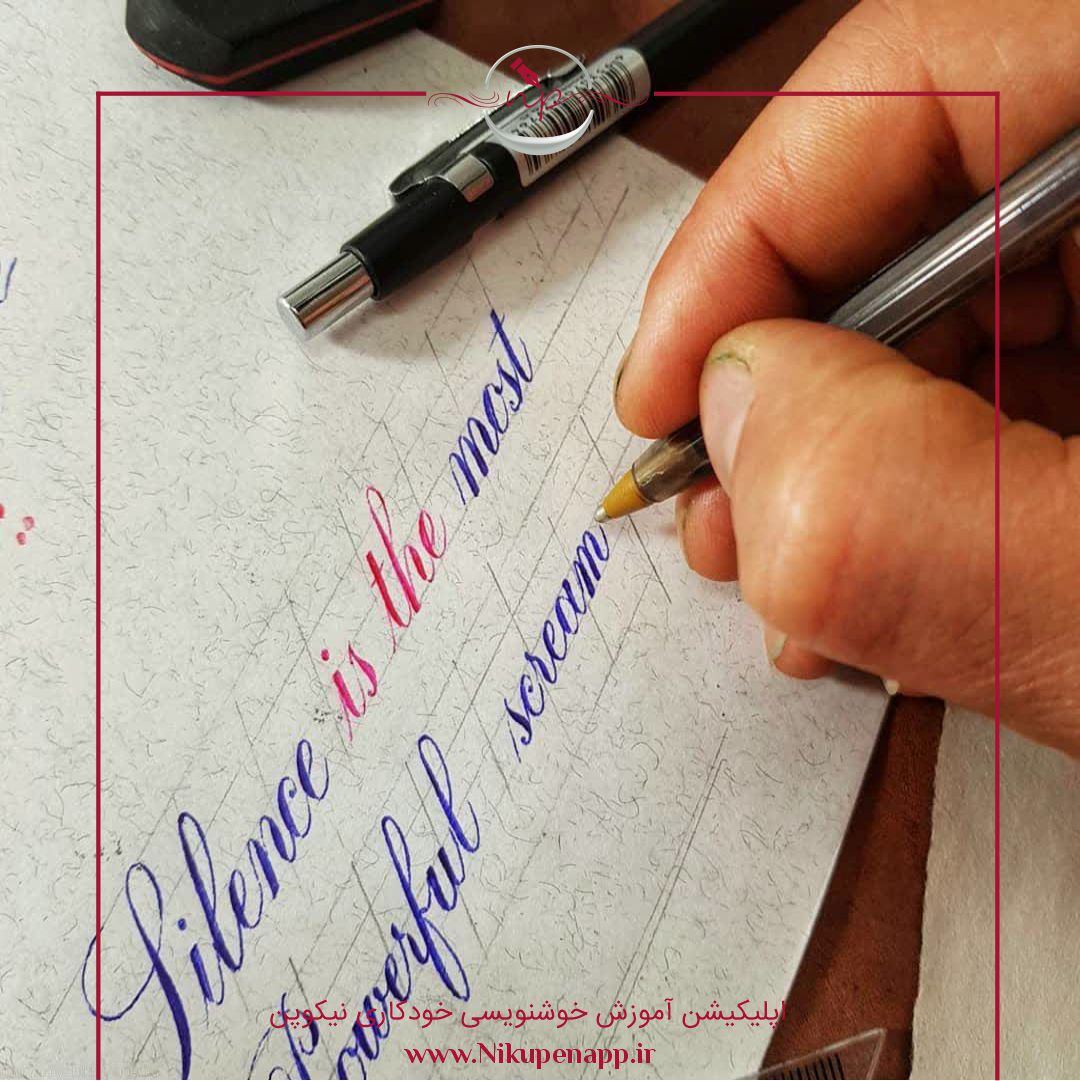 np
Silence is the most
Powerful scream
اپلیکیشن آموزش خوشنویسی خودکاری نیکوپن
www.Nikupenapp.ir